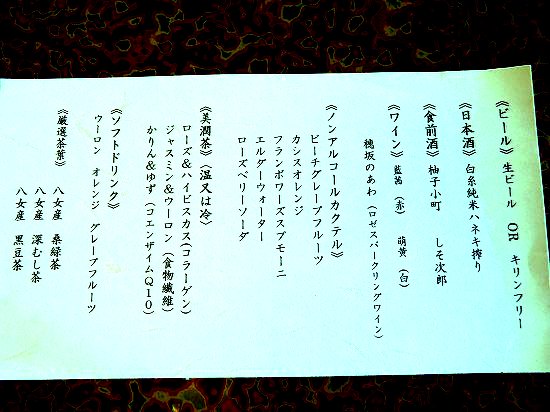 《ビール》 生ビール OR キリンフリー
《日本酒》 白糸純米ハネキ搾り
《食前酒》 柚子小町 しそ次郎
《ワイン》 藍茜(赤) 萌黄(白)
穂坂のあわ(ロゼスパークリングワイン)
《ノンアルコールカクテル》
ピーチグレープフルーツ
カシスオレンジ
フランボワーズスプモーニ
エルダーウォーター
ローズベリーソーダ
《美潤茶》(温又は冷)
ローズ&ハイビスカス(コラーゲン)
ジャスミン&ウーロン(食物繊維)
かりん&ゆず(コエンザイムQ10)
《ソフトドリンク》
ウーロン オレンジ グレープフルーツ
《厳選茶葉》 八女産 桑緑茶
八女産 深むし茶
八女産 黒豆茶